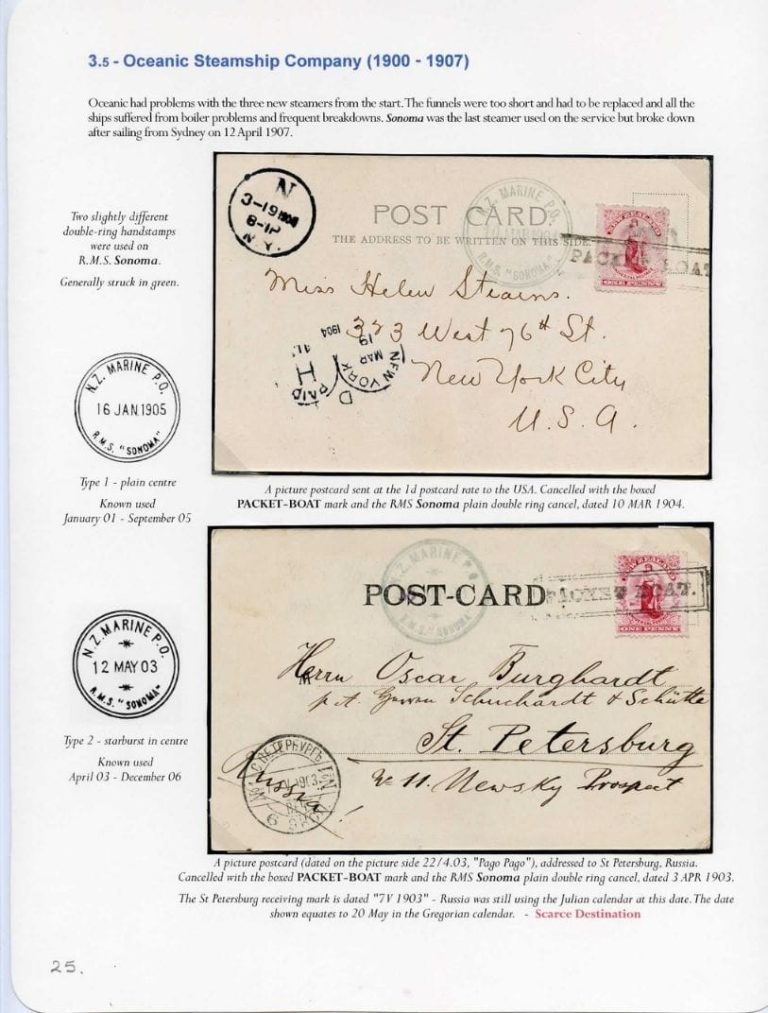 3.5 - Oceanic Steamship Company (1900 - 1907)
Oceanic had problems with the three new steamers from the start. The funnels were too short and had to be replaced and all the
ships suffered from boiler problems and frequent breakdowns. Sonoma was the last steamer used on the service but broke down
after sailing from Sydney on 12 April 1907.
Two slightly different
double-ring handstamps
were used on
R.M.S. Sonoma.
Generally struck in green.
N.Z. MARINE P.O.
16 JAN 1905
R.M.S. "SONOMA"
Type 1 - plain centre
Known used
January 01 - September 05
N
3-19 1904
8-1P
N.Y.
POST CARD.
THE ADDRESS TO BE WRITTEN ON THIS SIDE.
N.Z. MARINE P.O.
R.M.S. "SONOMA"
NEW ZEALAND
ONE PENNY
PACKET BOAT
Miss Helen Stearns.
323 West 76th St.
New York City
U.S.A.
NEW YORK
MAR
19
1904
D
PAID
H
A picture postcard sent at the 1d postcard rate to the USA. Cancelled with the boxed
PACKET-BOAT mark and the RMS Sonoma plain double ring cancel, dated 10 MAR 1904.
N.Z. MARINE P.O.
12 MAY 03
R.M.S. "SONOMA"
Type 2 - starburst in centre
Known used
April 03 - December 06
N.Z. MARINE P.O.
R.M.S. "SONOMA"
POST-CARD
NEW ZEALAND
ONE PENNY
PACKET BOAT.
Herrn Oscar Burghardt
Schuchardt & Schütte
St. Petersburg
11. Newsky Prospect
Russia!
С.ПЕТЕРБУРГЪ
A picture postcard (dated on the picture side 22/4.03, "Pago Pago"), addressed to St Petersburg, Russia.
Cancelled with the boxed PACKET-BOAT mark and the RMS Sonoma plain double ring cancel, dated 3 APR 1903.
The St Petersburg receiving mark is dated "7V 1903" - Russia was still using the Julian calendar at this date. The date
shown equates to 20 May in the Gregorian calendar. - Scarce Destination
25.